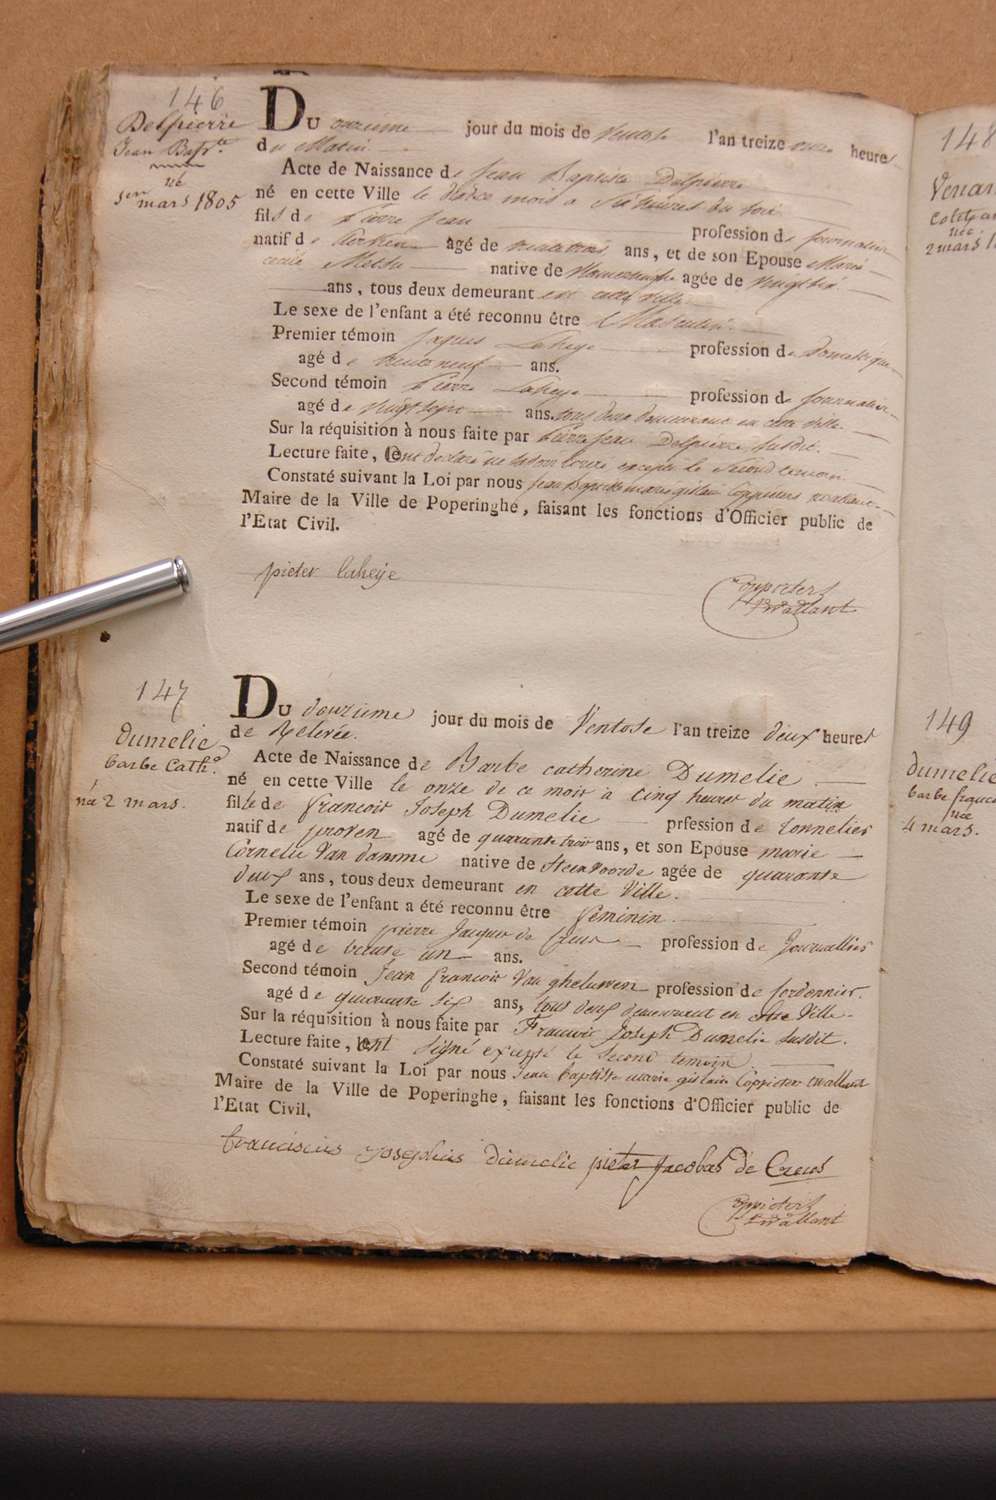 146
Delpierre
Jean Bapt.te
né
mars 1805
Du onzieme jour du mois de Ventose l'an treize onze heures
du Matin
Acte de Naissance de Jean Baptiste Delpierre
né en cette Ville le mois a Six heures du soir
fils de Pierre Jean profession de Journalier
natif de agé de ans, et de son Epouse Marie
cecile native de agée de vingt
ans, tous deux demeurant en cette ville
Le sexe de l'enfant a été reconnu être Masculin.
Premier témoin Jaques Laheye profession de Domestique
agé de ans.
Second témoin Pierre Laheye profession de Journalier
agé de vingt sept ans. tous deux demeurant en cette ville
Sur la réquisition à nous faite par Pierre Jean Delpierre susdit.
Lecture faite, ont declaré ne savoir ecrire excepté le second temoin
Constaté suivant la Loi par nous Jean Baptiste marie gislain Coppieters
Maire de la Ville de Poperinghe, faisant les fonctions d'Officier public de
l'Etat Civil.
pieter laheije
Coppieters
Twallant
147
Dumelie
barbe Cath.e
née 2 mars.
Du douzieme jour du mois de Ventose l'an treize deux heures
de Relevée.
Acte de Naissance de Barbe catherine Dumelie
né en cette Ville le onze de ce mois a cinq heures du matin
fille de francois Joseph Dumelie prfession de tonnelier
natif de proven agé de quarante trois ans, et son Epouse marie
Cornelie Van damme native de Steenvoorde agée de quarante
deux ans, tous deux demeurant en cette Ville.
Le sexe de l'enfant a été reconnu être feminin.
Premier témoin pierre Jacques de Creus profession de Journallier
agé de trente un ans.
Second témoin Jean francois Van gheluwen profession de Cordonnier.
agé de quarante six ans, tous deux demeurant en cette Ville.
Sur la réquisition à nous faite par Francois Joseph Dumelie susdit.
Lecture faite, ont signé excepté le second temoin
Constaté suivant la Loi par nous Jean baptiste marie gislain Coppieters twallant
Maire de la Ville de Poperinghe, faisant les fonctions d'Officier public de
l'Etat Civil.
franciscus Josephus dumelie pieter Jacobus de Creus
Coppieters
Twallant
148
2 mars
149
dumelie
barbe
née
4 mars.